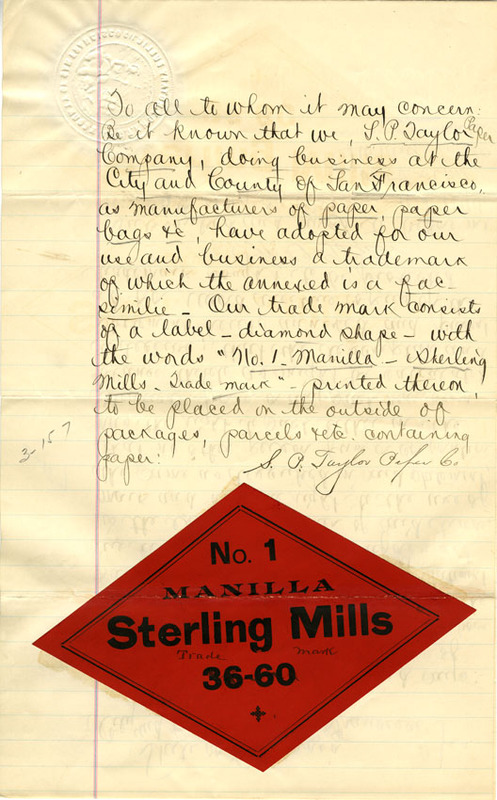 To all to whom it may concern:
Be it known that we, S. P. Taylor Paper
Company, doing business at the
City and County of San Francisco,
as manufacturers of paper, paper
bags &c, have adopted for our
use and business a trademark
of which the annexed is a fac-
similie - Our trade mark consists
of a label - diamond shape - with
the words "No. 1 - Manilla - Sterling
Mills - Trade mark" - printed thereon,
to be placed on the outside of
packages, parcels &etc. containing
paper:
S. P. Taylor Paper Co
3-157
No. 1
MANILLA
Sterling Mills
Trade mark
36-60